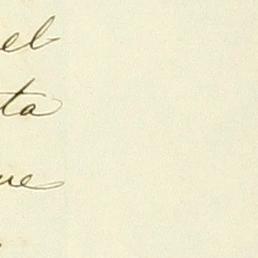 el
ta
ue